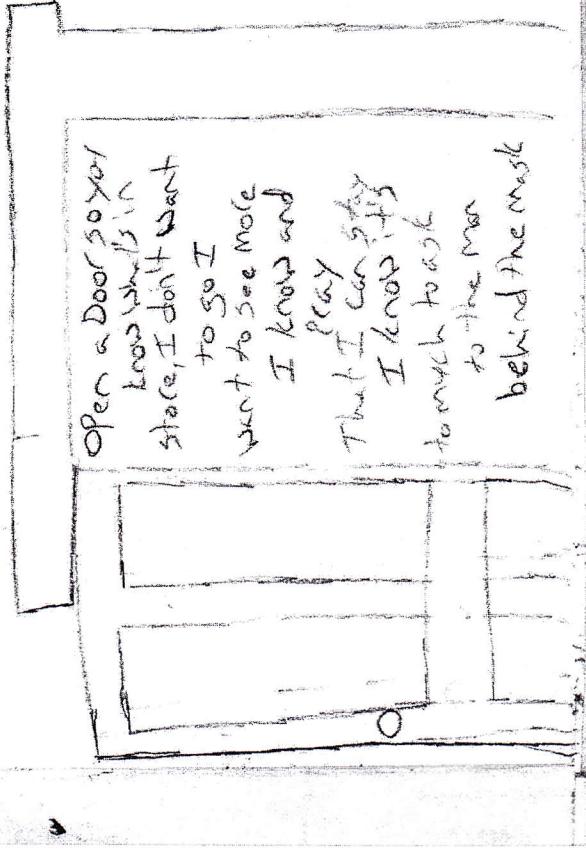 Open a Door so you
know what's in
store, I don't want
to go I
want to see more
I know and
Pray
That I can stay
I know it's
to much to ask
to the man
behind the mask